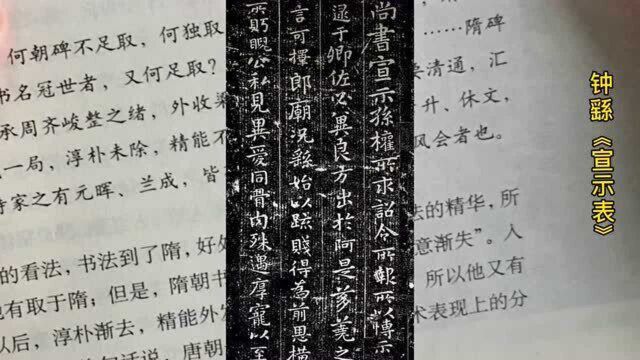 何朝碑不足取，何独取
书名冠世者，又何足取？
承周齐峻整之绪，外收
一局，淳朴未除，精能不
家之有元晖、兰成，皆
的看法，书法到了隋，好处
也有取于隋；但是，隋朝书
以后，淳朴渐去，精能外
句话说，唐朝
尚書宣示孫權所求詔令所報所以博示
逮于卿佐必冀良方出於阿是芻蕘之
言可擇郎廟況繇始以疏賤得為前恩橫
所眄睨公私見異愛同骨肉殊遇厚寵以至
……隋碑
清通，汇
升、休文，
风会者也。
法的精华，所
意渐失”。入
所以他又有
术表现上的分
钟繇《宣示表》